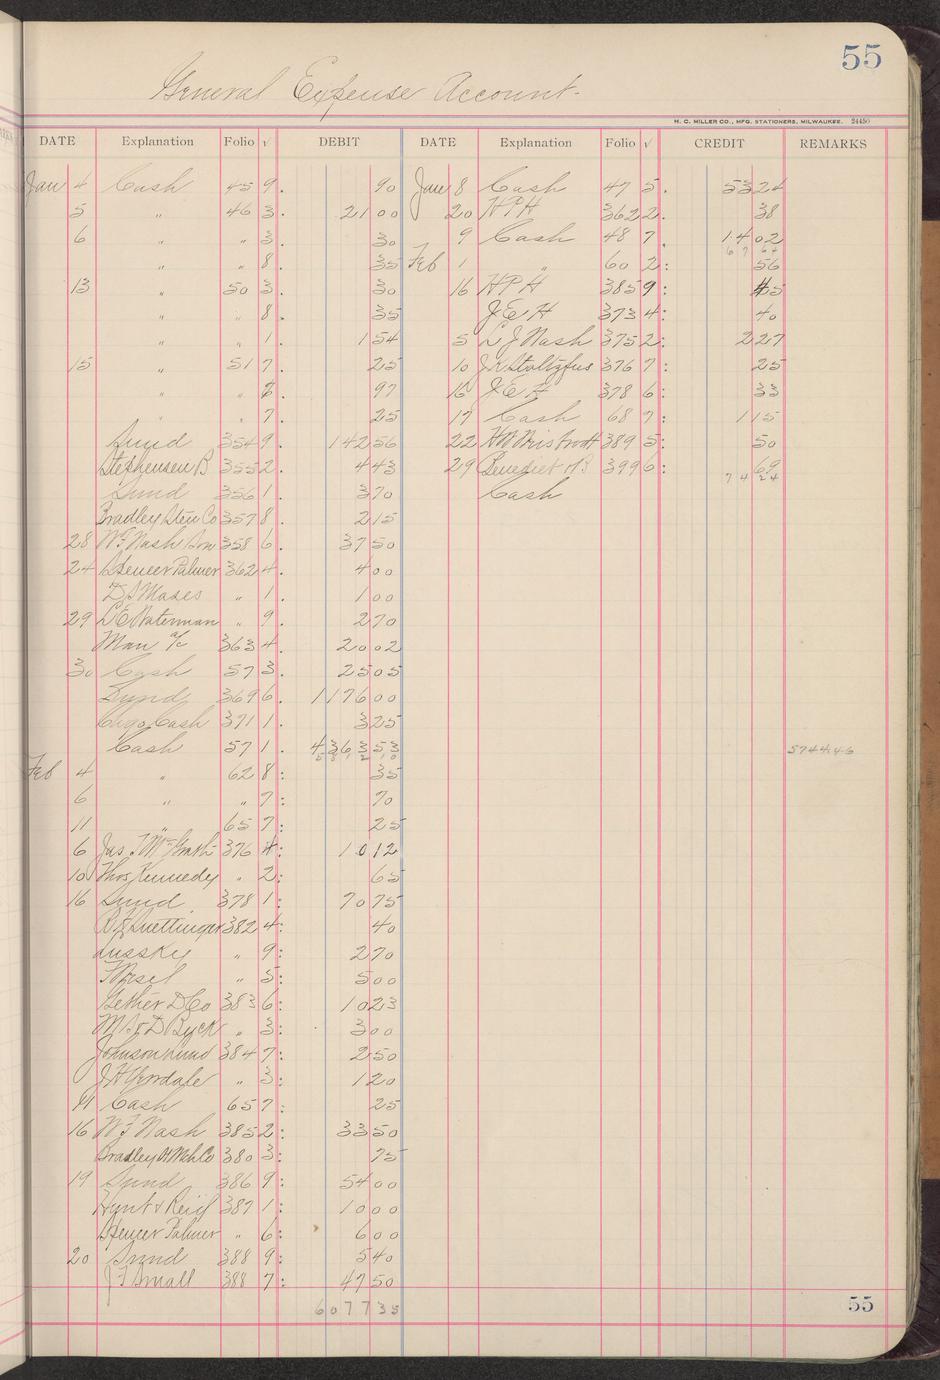 55
General Expense Account.
H. C. MILLER CO., MFG. STATIONERS, MILWAUKEE. 24450
DATE Explanation Folio √ DEBIT DATE Explanation Folio √ CREDIT REMARKS
Jan 4 Cash 45 9. 90 Jan 8 Cash 47 5. 53 24
5 " 46 3. 21 00 20 HPH 362 2. 38
6 " " 3. 30 9 Cash 48 7. 14 02
67 64
" " 8. 35 Feb 1 " 60 2: 56
13 " 50 3. 30 16 HPH 385 9: 5
" " 8. 35 JEH 373 4: 40
" " 1. 1 54 5 L J Nash 375 2: 2 27
15 " 51 7. 25 10 J K Stoltzfus 376 7: 25
" " 97 15 JEH 378 6: 33
" 7. 25 17 Cash 68 7: 1 15
Sund 354 9. 142 56 22 389 5: 50
Stephensen B 355 2. 4 43 29 Benedict 399 6: 69
74 24
Sund 356 1. 3 70 Cash
Bradley Sten Co 357 8. 2 15
28 Wm Nash Son 358 6. 37 50
24 Spencer Palmer 362 4. 4 00
D S Moses " 1. 1 00
29 L E Waterman " 9. 2 70
Man a/c 363 4. 20 02
30 Cash 57 3. 25 05
Sund 369 6. 1176 00
Chgo Cash 371 1. 3 25
Cash 57 1. 4363 53 5744.46
Feb 4 " 62 8: 35
6 " " 7: 70
11 " 65 7: 25
6 Jas. T. McGrath 376 4: 10 12
10 Thos Kennedy " 2: 65
16 Sund 378 1: 70 75
382 4: 40
Lussky " 9: 2 70
" 5: 5 00
Gether D Co 383 6: 10 23
" 3: 3 00
Johnson 384 7: 2 50
" 3: 1 20
11 Cash 65 7: 25
16 Nash 385 2: 33 50
Bradley Co 380 3: 75
19 Sund 386 9: 54 00
Hunt & Reid 387 1: 10 00
Spencer Palmer " 6: 6 00
20 Sund 388 9: 5 40
J F Small 388 7: 47 50
6077 35 55